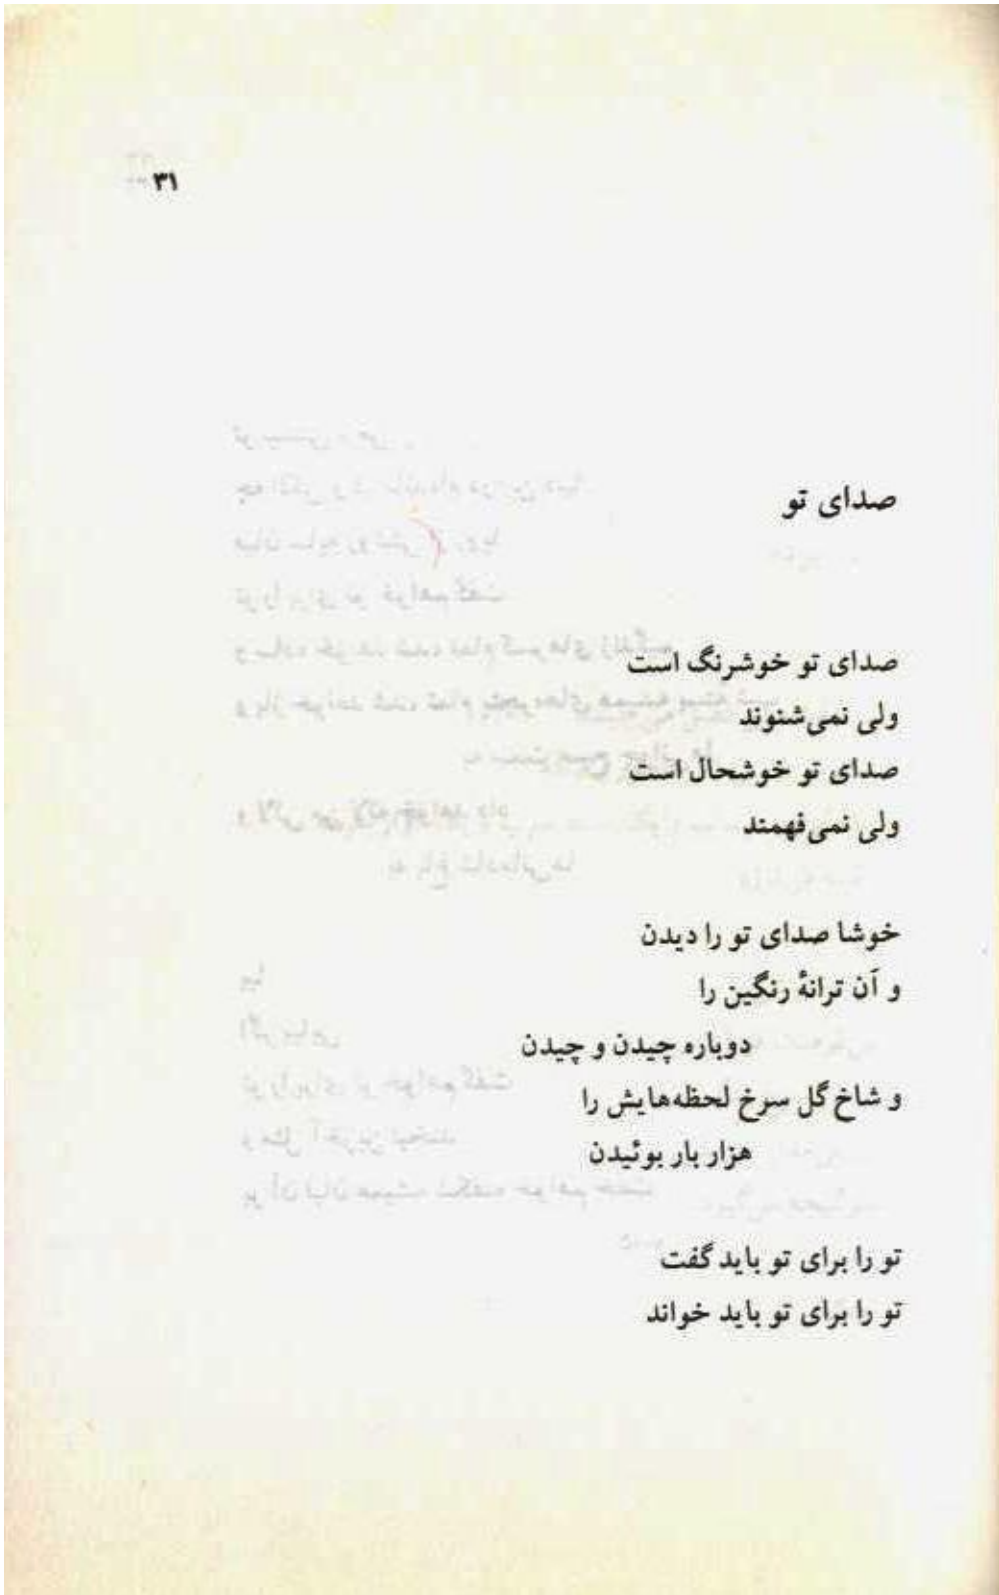 ۳۱
صدای تو
صدای تو خوشرنگ است
ولی نمی‌شنوند
صدای تو خوشحال است
ولی نمی‌فهمند
خوشا صدای تو را دیدن
و آن ترانهٔ رنگین را
دوباره چیدن و چیدن
و شاخ گل سرخ لحظه‌هایش را
هزار بار بوئیدن
تو را برای تو باید گفت
تو را برای تو باید خواند